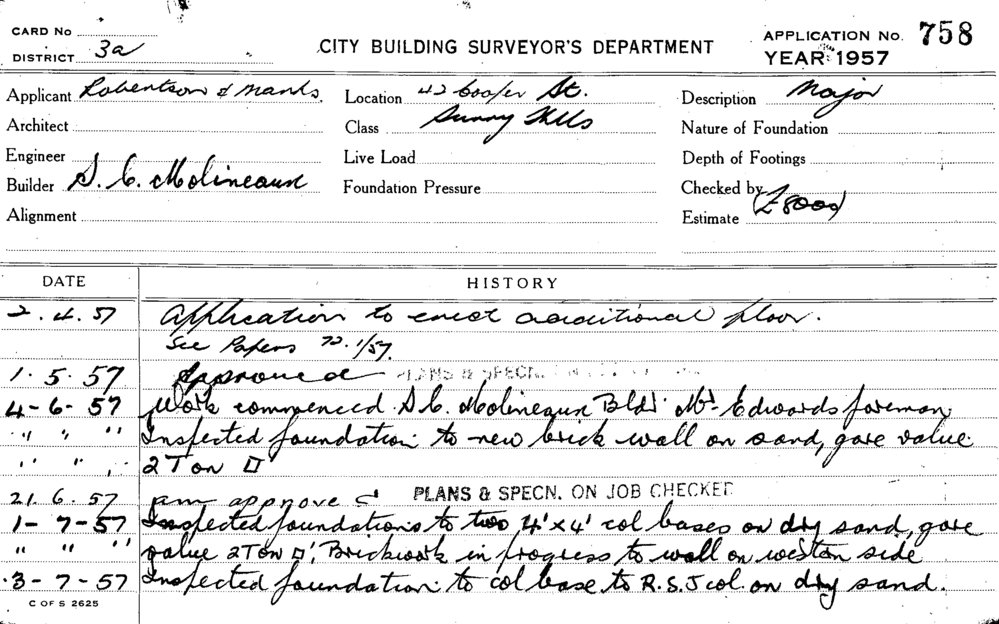 CARD No
DISTRICT 3a
CITY BUILDING SURVEYOR'S DEPARTMENT
APPLICATION No. 758
YEAR 1957
Applicant Robertson & Marks
Location 42 Cooper St.
Description Major
Architect
Class Surry Hills
Nature of Foundation
Engineer
Live Load
Depth of Footings
Builder S. C. Molineaux
Foundation Pressure
Checked by
Alignment
Estimate £8000
DATE HISTORY
2.4.57 Application to erect additional floor.
See Papers 72.1/57.
1.5.57 Approved PLANS & SPECN.
4-6-57 Work commenced. S.C. Molineaux Bldr. Mr Edwards foreman
" " " Inspected foundation to new brick wall on sand, gave value
" " " 2 Ton □'
21.6.57 approved PLANS & SPECN. ON JOB CHECKED
1-7-57 Inspected foundations to two 4'x4' col bases on dry sand, gave
" " " value 2 Ton □', Brickwork in progress to wall on western side
3-7-57 Inspected foundation to col base to R.S.J col on dry sand.
C OF S 2625